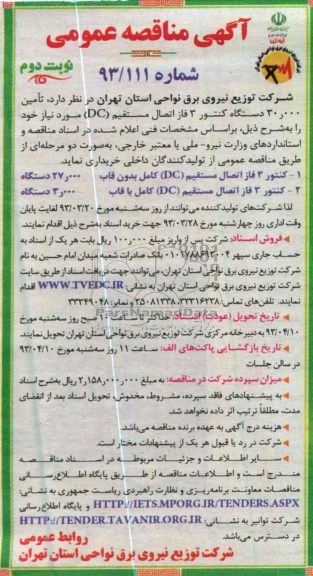 آگهی مناقصه عمومی
شماره ۹۳/۱۱۱
نوبت دوم
شرکت توزیع نیروی برق نواحی استان تهران در نظر دارد، تأمین
۳۰٫۰۰۰ دستگاه کنتور ۳ فاز اتصال مستقیم (DC) مورد نیاز خود
را به‌شرح ذیل، براساس مشخصات فنی اعلام شده در اسناد مناقصه و
استانداردهای وزارت نیرو- ملی یا معتبر خارجی، به‌صورت دو مرحله‌ای از
طریق مناقصه عمومی از تولیدکنندگان داخلی خریداری نماید.
۱ - کنتور ۳ فاز اتصال مستقیم (DC) کامل بدون قاب ۲۷٫۰۰۰ دستگاه
۲ - کنتور ۳ فاز اتصال مستقیم (DC) کامل با قاب ۳٫۰۰۰ دستگاه
لذا شرکت‌های تولیدکننده می‌توانند از روز سه‌شنبه مورخ ۹۳/۰۳/۲۰ لغایت پایان
وقت اداری روز چهارشنبه مورخ ۹۳/۰۳/۲۸ جهت خرید اسناد به‌شرح ذیل اقدام نمایند.
فروش اسناد: شرکت پس از واریز مبلغ ۱۰۰٫۰۰۰ ریال بابت هر یک از اسناد به
حساب جاری سپهر بانک صادرات شعبه میدان امام حسین به نام
شرکت توزیع نیروی برق نواحی استان تهران، می‌توانند جهت دریافت اسناد از طریق سایت
شرکت توزیع نیروی برق نواحی استان تهران به نشانی: WWW.TVEDC.IR اقدام
نمایند. تلفن‌های تماس: ۳۳۳۱۶۲۳۸، ۲۵۰۸۱۳۳۸ و نمابر: ۳۳۳۴۹۰۴۸
تاریخ تحویل (عودت) اسناد: حداکثر تا ساعت صبح روز سه‌شنبه مورخ
۹۳/۰۴/۱۰ به دبیرخانه مرکزی شرکت توزیع نیروی برق نواحی استان تهران تحویل نمایند.
تاریخ بازگشایی پاکت‌های الف: ساعت ۱۱ روز سه‌شنبه مورخ ۹۳/۰۴/۱۰
در سالن جلسات
میزان سپرده شرکت در مناقصه: به مبلغ ۲٫۱۵۸٫۰۰۰٫۰۰۰ ریال به‌شرح اسناد
به پیشنهادهای فاقد سپرده، مشروط، مخدوش، تحویل اسناد بعد از انقضای
مدت، مطلقاً ترتیب اثر داده نخواهد شد.
هزینه درج آگهی به عهده برنده مناقصه می‌باشد.
شرکت در رد یا قبول هر یک از پیشنهادات مختار است.
سایر اطلاعات و جزئیات مربوطه در اسناد مناقصه
مندرج است و اطلاعات مناقصه از طریق پایگاه اطلاع‌رسانی
مناقصات معاونت برنامه‌ریزی و نظارت راهبردی ریاست جمهوری به نشانی:
HTTP://IETS.MPORG.IR/TENDERS.ASPX و پایگاه اطلاع‌رسانی
شرکت توانیر به نشانی: HTTP://TENDER.TAVANIR.ORG.IR
در دسترس می‌باشد.
روابط عمومی
شرکت توزیع نیروی برق نواحی استان تهران